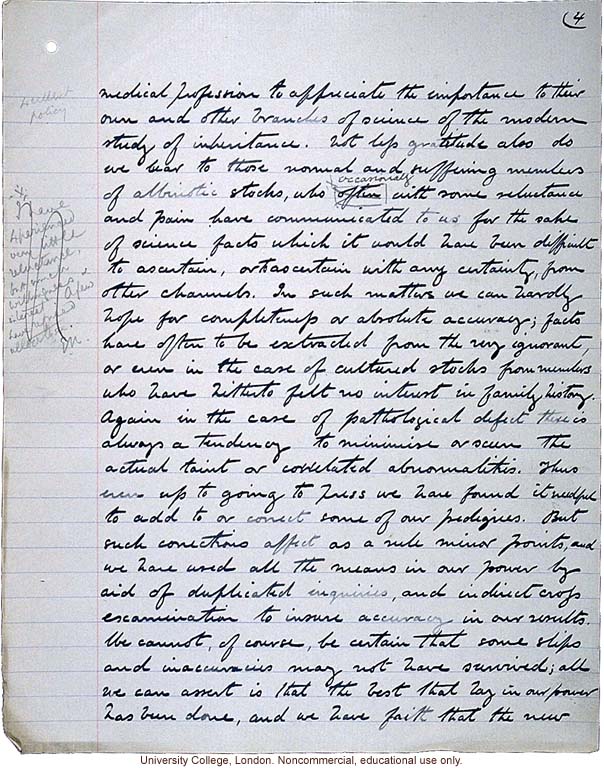 4
medical profession to appreciate the importance to their
own and other branches of science of the modern
study of inheritance. Not less gratitude also do
we bear to those normal and suffering members
occasionally
of albinotic stocks, who often with some reluctance
and pain have communicated to us for the sake
of science facts which it would have been difficult
to ascertain, or to ascertain with any certainty, from
other channels. In such matters we can hardly
hope for completeness or absolute accuracy; facts
have often to be extracted from the very ignorant,
or even in the case of cultured stocks from members
who have hitherto felt no interest in family history.
Again in the case of pathological defect there is
always a tendency to minimise or screen the
actual taint or correlated abnormalities. Thus
even up to going to press we have found it needful
to add to or correct some of our pedigrees. But
such corrections affect as a rule minor points, and
we have used all the means in our power by
aid of duplicated inquiries, and indirect cross
examination to insure accuracy in our results.
We cannot, of course, be certain that some slips
and inaccuracies may not have survived; all
we can assert is that the best that lay in our power
has been done, and we have faith that the new
policy
I have
experienced
very little
reluctance,
but much
silence
a few
University College, London. Noncommercial, educational use only.